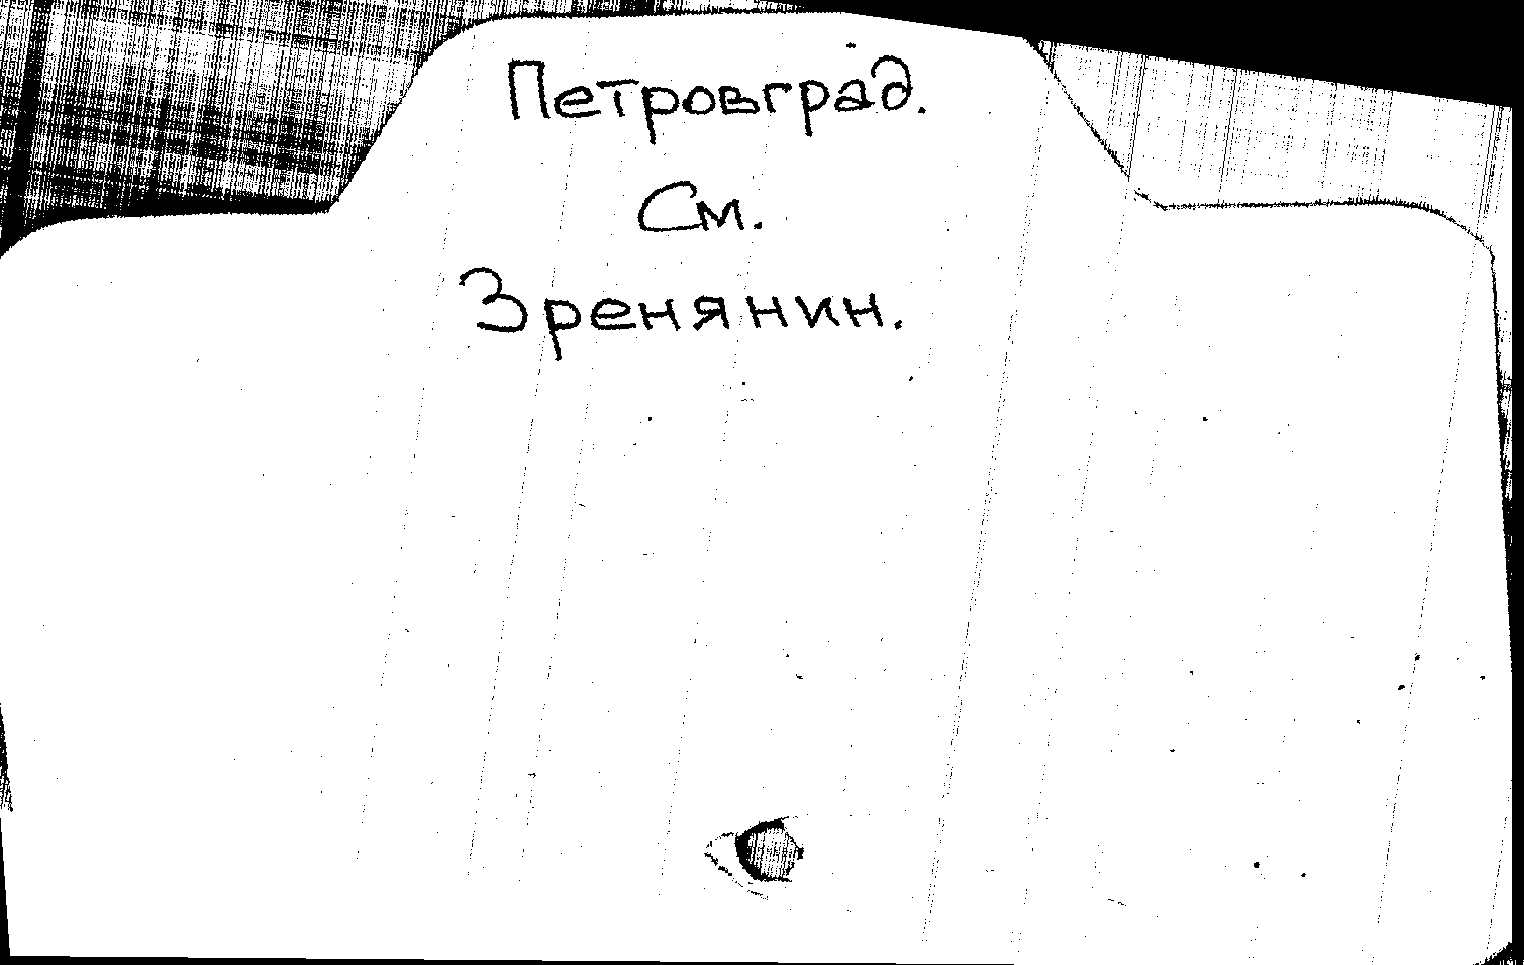 Петровград.
См.
Зренянин.